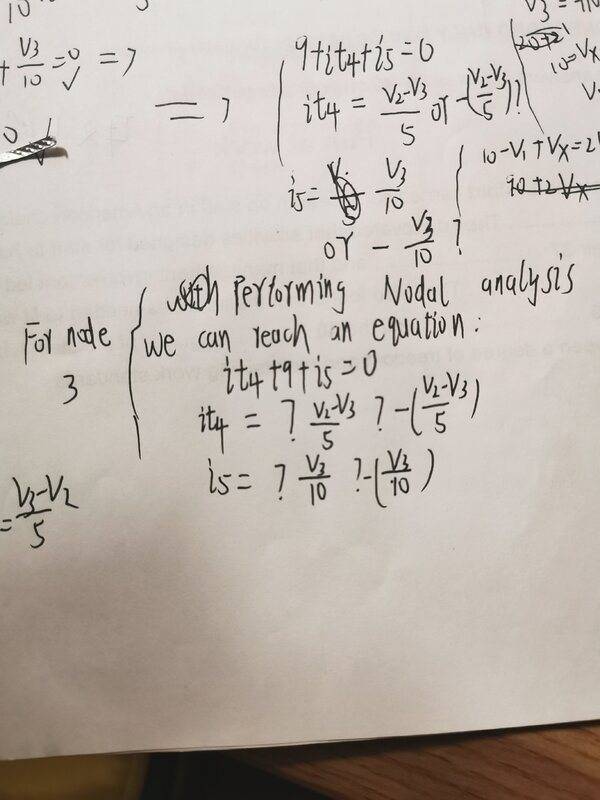 + V3/10 = 0 ✓ => 
9+it4+i5=0
it4 = V2-V3/5 or -(V2-V3/5)?
i5= V3/10
or - V3/10 ?
10=Vx
10-V1+Vx=2V
10+2Vx
For node 3
with Performing Nodal analysis
we can reach an equation:
it4+9+i5=0
it4 = ? V2-V3/5 ? -(V2-V3/5)
i5= ? V3/10 ? -(V3/10)
= V3-V2/5